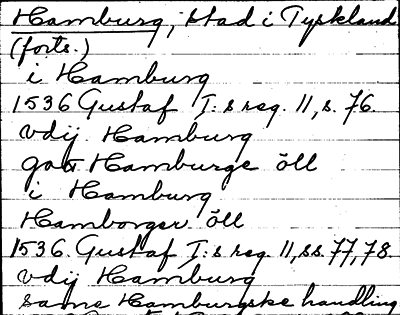 Hamburg, stad i Tyskland
(forts.)
i Hamburg
1536 Gustaf I:s reg. 11, s. 76.
vdij Hamburg
gott Hamburge öll
i Hamburg
Hamborger öll
1536. Gustaf I:s reg. 11, ss. 77, 78.
vdij Hamburg
same Hamburgske handling